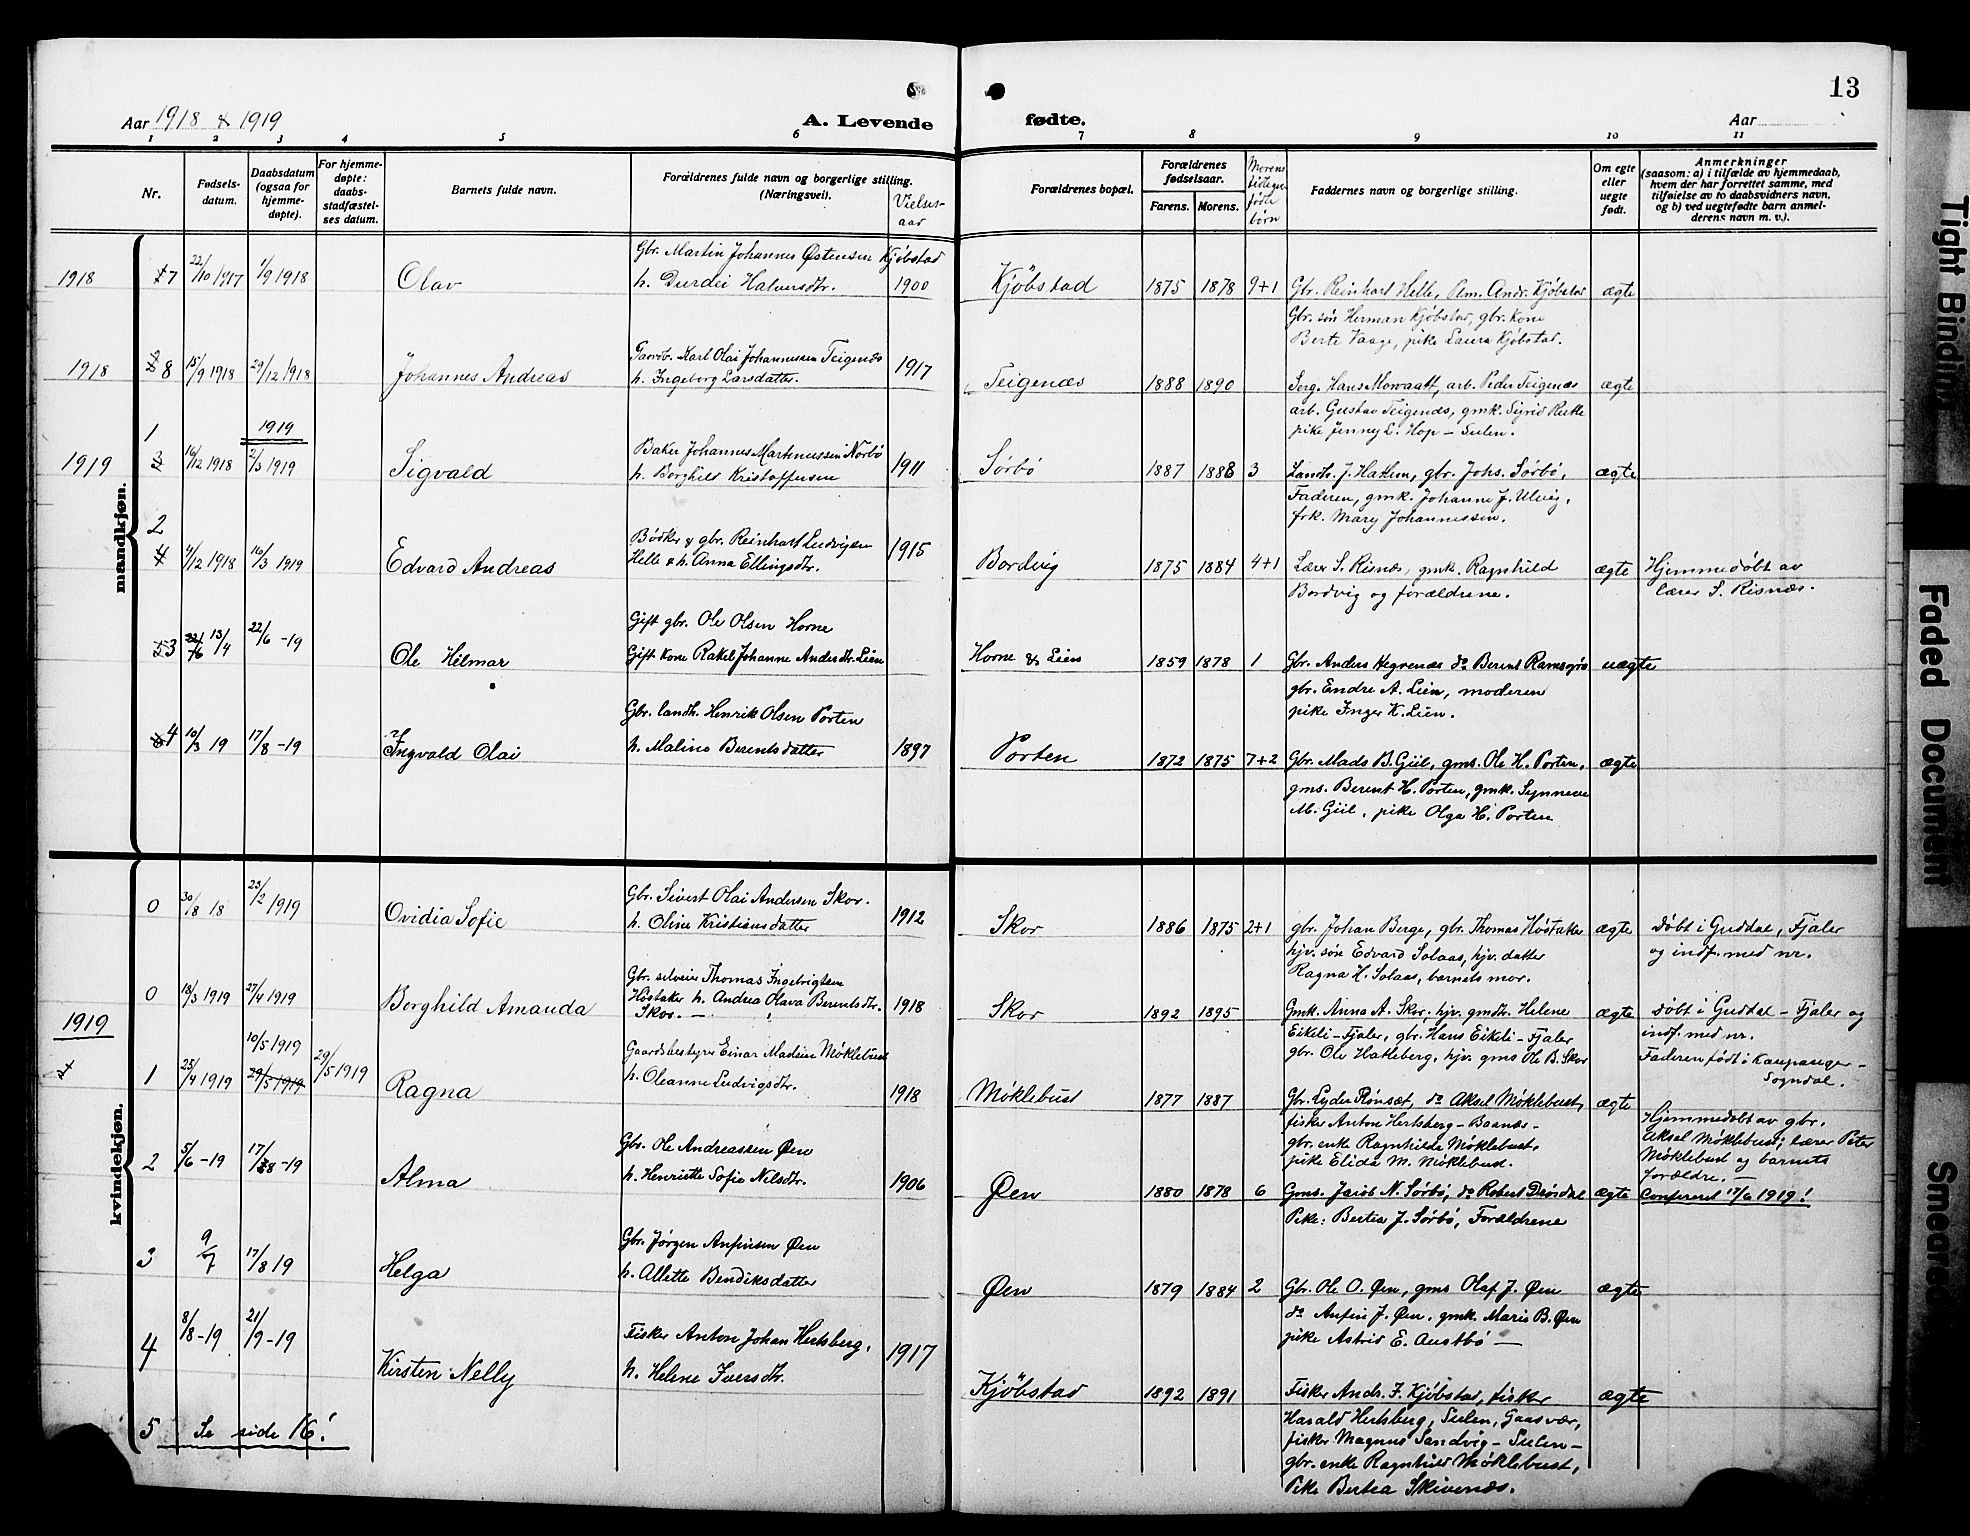 13
Aar 1918 & 1919
A. Levende
fødte.
Aar
1 2 3 4 5 6 7 8 9 10 11
Nr.
Fødsels-
datum.
Daabsdatum
(ogsaa for
hjemme-
døpte).
For hjemme-
døpte:
daabs-
stadfæstel-
ses datum.
Barnets fulde navn.
Forældrenes fulde navn og borgerlige stilling.
(Næringsvei).
Vielses-
aar
Forældrenes bopæl.
Forældrenes
fødselsaar.
Farens. Morens.
Morens
tidligere
fødte
børn
Faddernes navn og borgerlige stilling.
Om egte
eller
uegte
født.
Anmerkninger
(saasom: a) i tilfælde av hjemmedaab,
hvem der har forrettet samme, med
tilføielse av to daabsvidners navn,
og b) ved uegtefødte barn anmel-
derens navn m. v.).
mandkjøn.
1918 7 22/10 1917 1/9 1918 Olav
Gbr. Martin Johannes Østensen Kjøbstad
h. Durdei Halversdtr. 1900
Kjöbstad 1875 1878 9+1
Gbr. Reinhart Helle, Pem. Andr. Kjöbstad ægte
Gbr. søn Herman Kjöbstad, gbr. kone
Berte Vaage, pike Laura Kjöbstad.
1918 8 15/9 1918 29/12 1918 Johannes Andreas
Gaardb. Karl Olai Johannessen Teigenæs
h. Ingeborg Larsdatter. 1917
Teigenæs 1888 1890
Serg. Hans Morvaatt, arb. Peder Teigenæs ægte
arb. Gustav Teigenæs, gmk. Sigrid Rutle
pike Jenny L. Hop - Sulen.
1919
1919 1 3 16/12 1918 2/3 1919 Sigvald
Baker Johannes Martinussen Norbö
h. Borghild Kristoffersen 1911
Sörbö 1887 1888 3
Landh. J. Hatlem, gbr. Johs. Sörbö, ægte
Faderen, gmk. Johanne J. Ulvig,
frk. Mary Johannessen.
2 4 4/12 1918 16/3 1919 Edvard Andreas
Bødker & gbr. Reinhart Ludvigsen
Helle & h. Anna Ellingsdtr. 1915
Bordvig 1875 1884 4+1
Lærer S. Risnæs, gmk. Ragnhild ægte
Bordvig og forældrene.
Hjemmedöbt av
lærer S. Risnæs.
5 3 13/4 22/6 -19 Ole Hilmar
Gift gbr. Ole Olsen Horne
Gift kone Rakel Johanne Andersdtr. Lien
Horne & Lien 1859 1878 1
Gbr. Anders Hegrenæs do Berent Ramsgrø uægte
gbr. Endre A. Lien, moderen
pike Inger K. Lien.
4 10/3 19 17/8 -19 Ingvald Olai
Gbr. landh. Henrik Olsen Porten
h. Malino Berentsdatter 1897
Porten 1872 1875 7+2
Gbr. Mads B. Giil, gms. Ole H. Porten, ægte
gms. Berent H. Porten, gmk. Synneve
M. Giil, pike Olga H. Porten
kvindekjøn.
0 30/8 18 23/2 1919 Ovidia Sofie
Gbr. Sivert Olai Andersen Skor.
h. Oline Kristiansdatter 1912
Skor 1886 1875 2+1
gbr. Johan Berge, gbr. Thomas Høstaker ægte
hjv. søn Edvard Solaas, hjv. datter
Ragna H. Solaas, barnets mor.
Døbt i Guddal, Fjaler
og indf. med nr.
0 18/3 1919 27/4 1919 Borghild Amanda
Gbr. selveier Thomas Ingebrigtsen
Høstaker h. Andrea Olava Berentsdtr.
Skor. — 1918
Skor 1892 1895
Gmk. Anna A. Skor, hjv. gmdtr. Helene ægte
Eikeli-Fjaler, gbr. Hans Eikeli-Fjaler
gbr. Ole Hatleberg, hjv. gms Ole B. Skor
Døbt i Guddal - Fjaler og
indf. med nr.
Faderen født i Kaupanger -
Sogndal.
1919
1 25/4 1919 10/5 1919 29/5 1919 29/5 1919 Ragna
Gaardsbestyrer Einar Madsen Møklebust
h. Oleanne Ludvigsdtr. 1918
Møklebust 1877 1887
Gbr. Lyder Rønset, do Aksel Møklebust, ægte
fisker Anton Hertsberg - Baanæs -
gbr. enke Ragnhilda Møklebust,
pike Elida M. Møklebust.
Hjemmedøbt av gbr.
Aksel Møklebust; lærer Peter
Møklebust og barnets
forældre. —
Confereret 17/6 1919!
2 5/6 -19 17/8 -19 Alma
Gbr. Ole Andreassen Øen
h. Henriette Sofie Nilsdtr. 1906
Øen 1880 1878 6
Gms. Jacob N. Sørbø, do Robert Drösdal ægte
Pike: Bertea J. Sørbø, Forældrene
3 9/7 17/8 19 Helga
Gbr. Jørgen Anfinsen Øen
h. Allette Bendiksdatter
Øen 1879 1884 2
Gbr. Ole O. Øen, gms Olaf J. Øen ægte
do Anfin J. Øen, gmk. Maris B. Øen
pike Astrid E. Austbø —
4 8/8 -19 21/9 -19 Kirsten Nelly
Fisker Anton Johan Hertsberg,
h. Helene Iversdtr. 1917
Kjöbstad 1892 1891
Fisker Andr. F. Kjöbstad, fisker ægte
Harald Hertsberg, Sulen, Gaasvær,
fisker Magnus Sandvig - Sulen -
gbr. enke Ragnhild Møklebust,
Pike Bertea Skivenæs.
5 Se side 16!
Tight Binding
Faded Document
Smeared